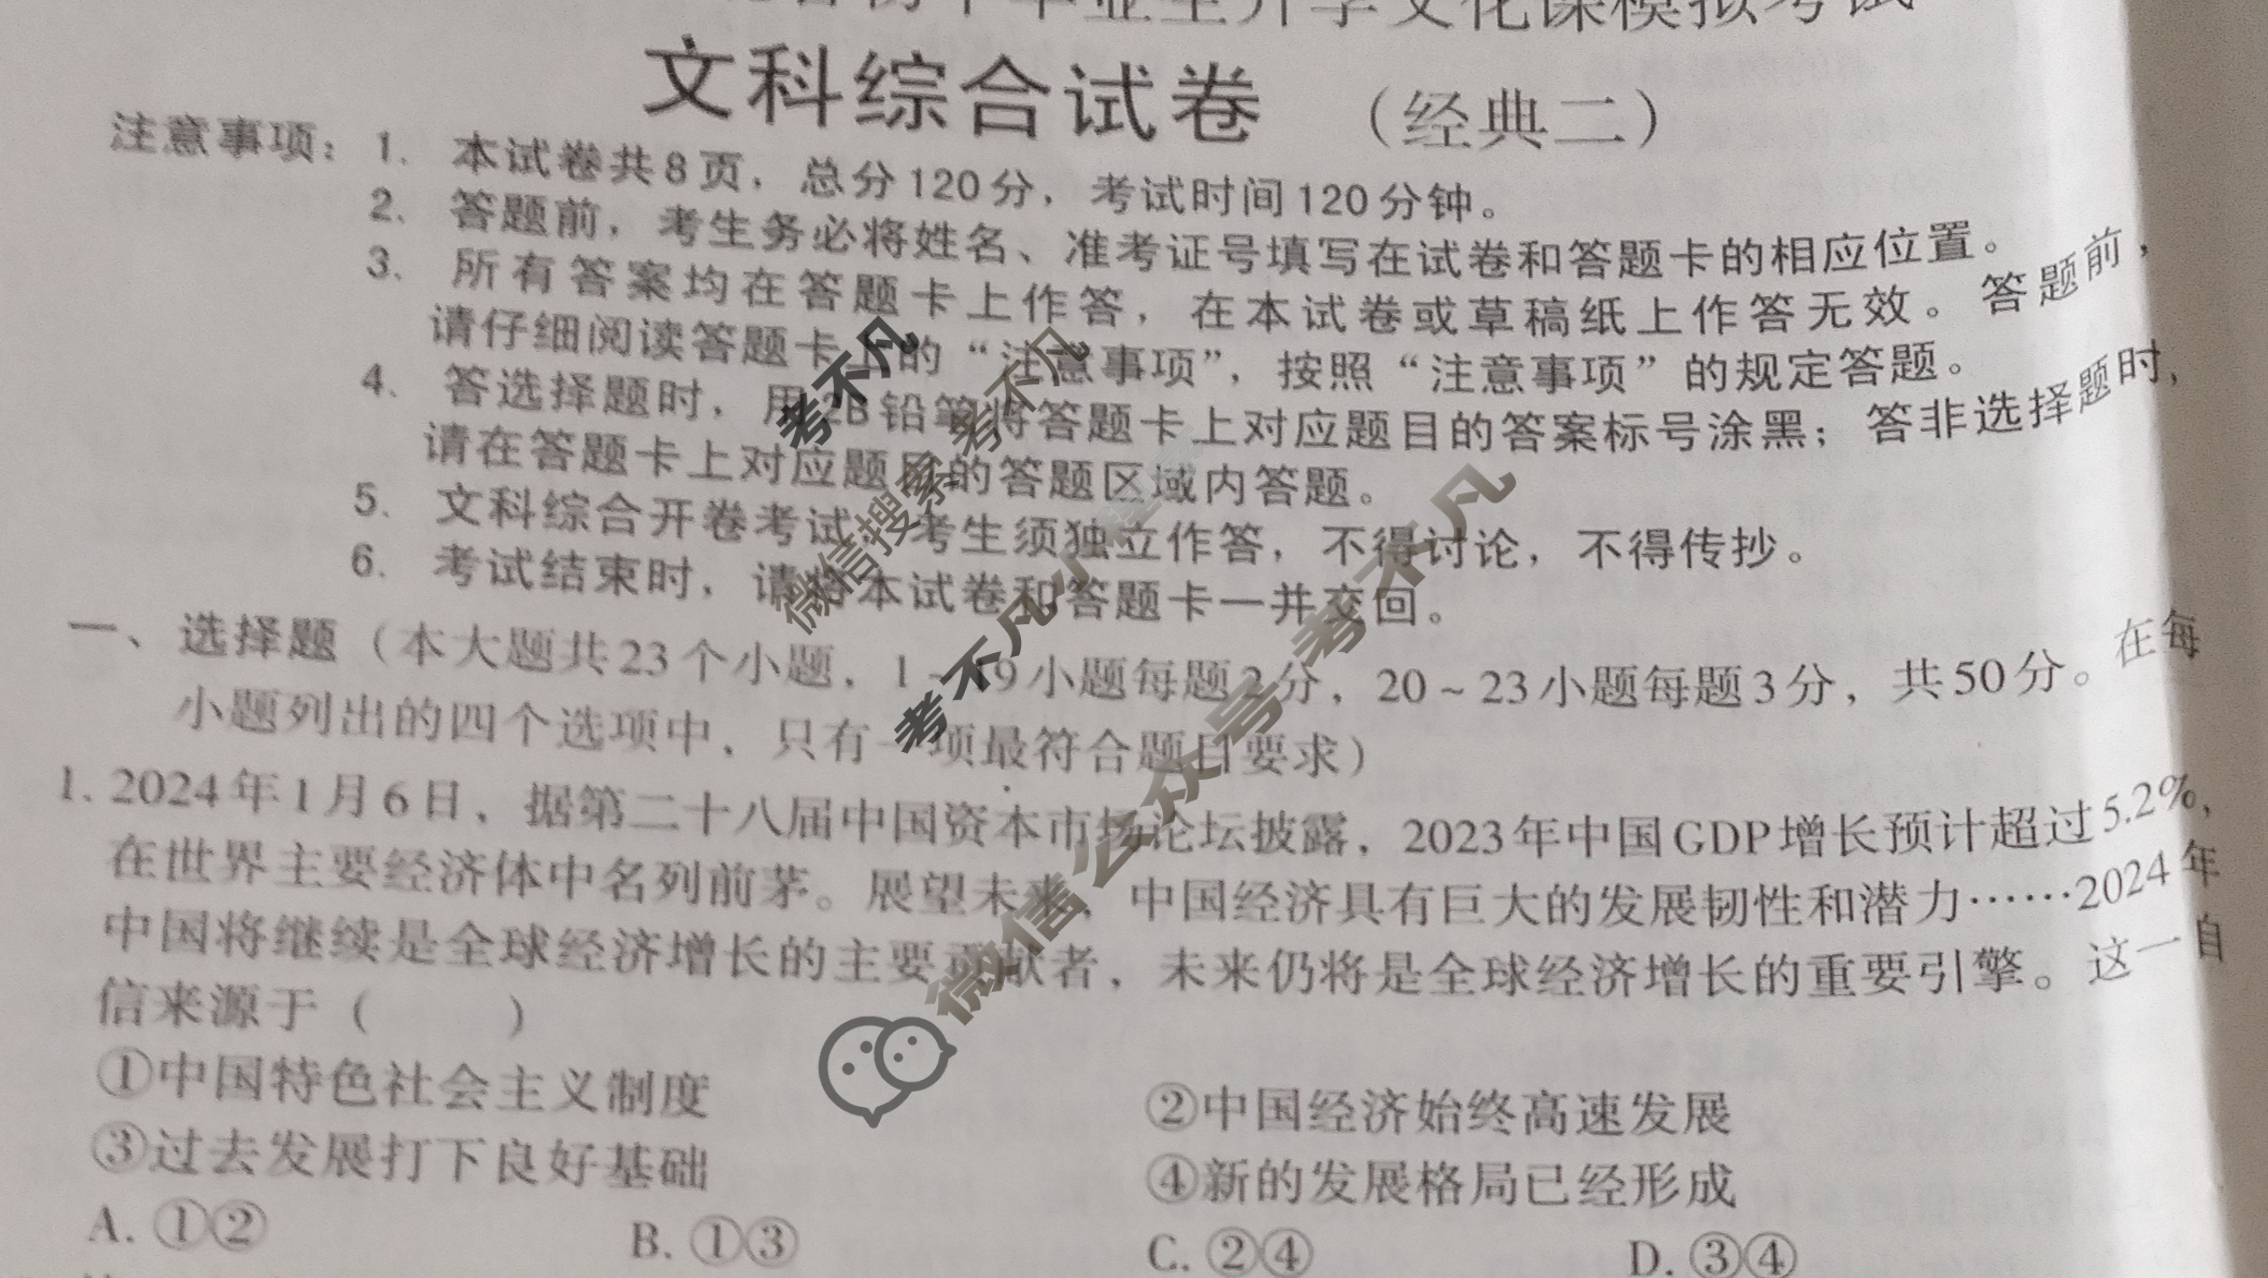 初中毕业生升学文化课模拟考试
文科综合试卷（经典二）
注意事项：1. 本试卷共8页，总分120分，考试时间120分钟。
2. 答题前，考生务必将姓名、准考证号填写在试卷和答题卡的相应位置。
3. 所有答案均在答题卡上作答，在本试卷或草稿纸上作答无效。答题前，
请仔细阅读答题卡上的“注意事项”，按照“注意事项”的规定答题。
4. 答选择题时，用2B铅笔将答题卡上对应题目的答案标号涂黑；答非选择题时，
请在答题卡上对应题目的答题区域内答题。
5. 文科综合开卷考试，考生须独立作答，不得讨论，不得传抄。
6. 考试结束时，请将本试卷和答题卡一并交回。
一、选择题（本大题共23个小题，1~19小题每题2分，20~23小题每题3分，共50分。在每
小题列出的四个选项中，只有一项最符合题目要求）
1. 2024年1月6日，据第二十八届中国资本市场论坛披露，2023年中国GDP增长预计超过5.2%，
在世界主要经济体中名列前茅。展望未来，中国经济具有巨大的发展韧性和潜力……2024年
中国将继续是全球经济增长的主要贡献者，未来仍将是全球经济增长的重要引擎。这一自
信来源于（　　）
①中国特色社会主义制度 ②中国经济始终高速发展
③过去发展打下良好基础 ④新的发展格局已经形成
A. ①② B. ①③ C. ②④ D. ③④
考不凡
考不凡
微信搜索
考不凡小程序
微信公众号 考不凡